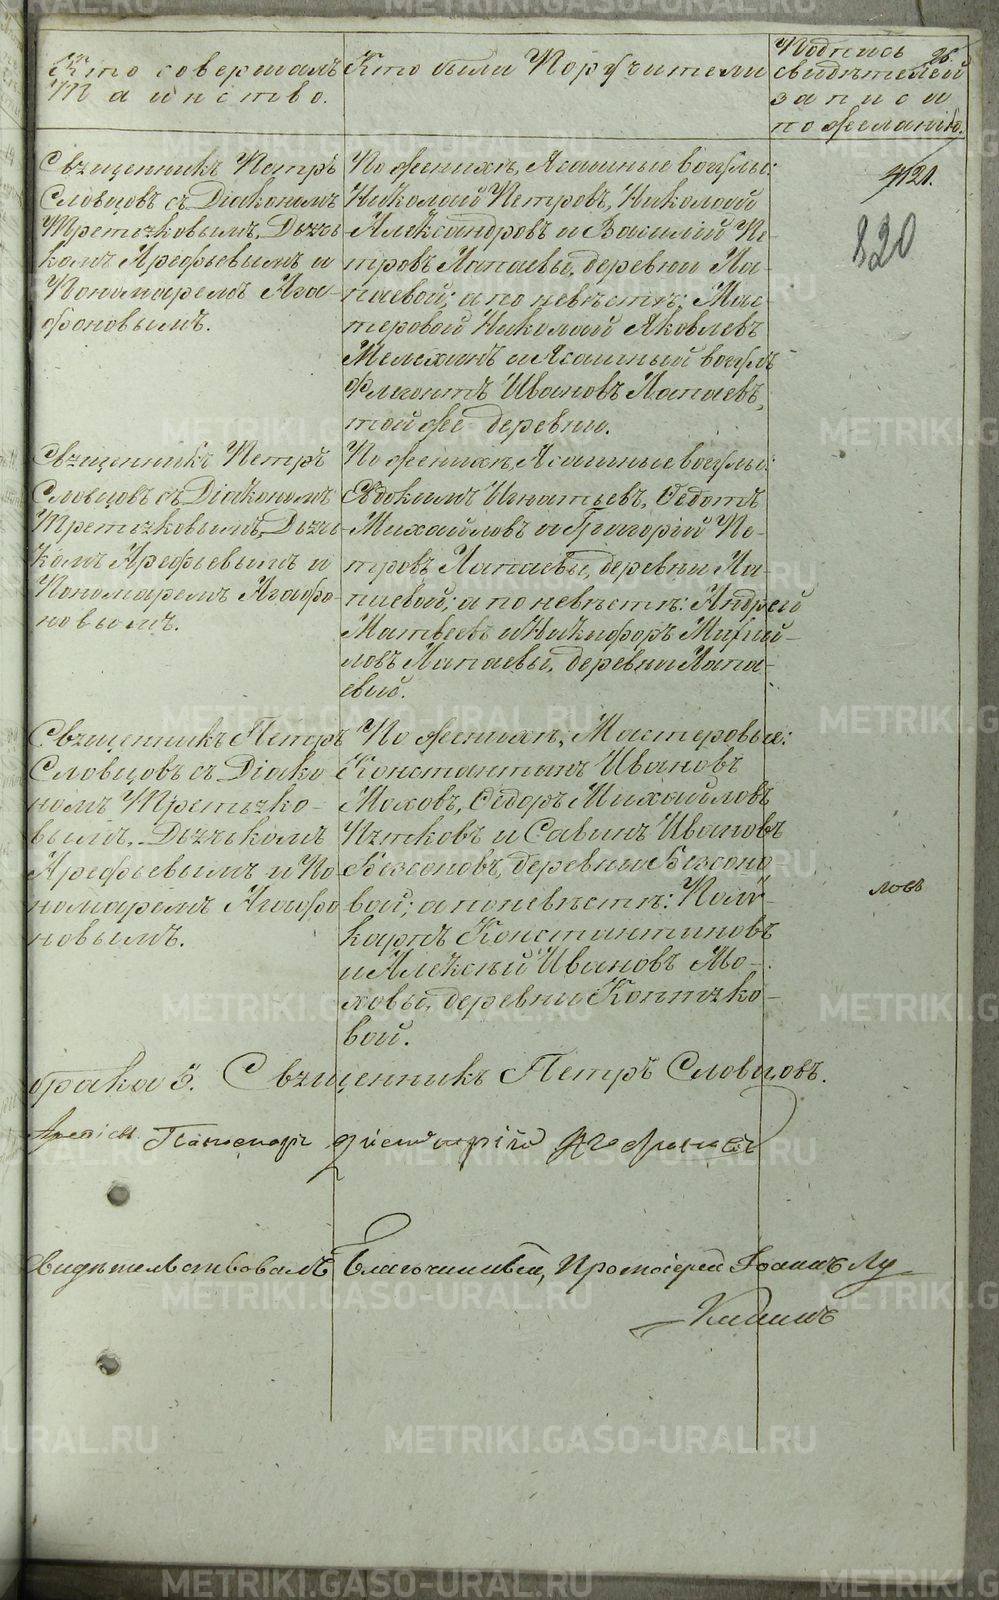 Кто совершалъ
Таинство.
Кто были Поручители
Подпись
свидѣтелей
записи
по желанію.
26.
Священникъ Петръ
Словцовъ съ Діакономъ
Третьяковымъ, Дьяч-
комъ Арефьевымъ и
Пономаремъ Ага-
фоновымъ.
По женихѣ, Ясашные вогулы:
Николай Петровъ, Николай
Александровъ и Василій Пе-
тровъ Лапаевы, деревни Ла-
паевой; а по невѣстѣ: Мас-
теровой Николай Яковлевъ
Мелехинъ и Ясашный вогулъ
Флегонтъ Ивановъ Лапаевъ,
той же деревни.
820
Священникъ Петръ
Словцовъ съ Діакономъ
Третьяковымъ, Дьяч-
комъ Арефьевымъ и
Пономаремъ Агафо-
новымъ.
По женихѣ, Ясашные вогулы:
Евдокимъ Игнатьевъ, Федотъ
Михайловъ и Григорій Пе-
тровъ Лапаевы, деревни Ла-
паевой; а по невѣстѣ: Андрей
Матвеевъ и Никифоръ Михай-
ловъ Лапаевы, деревни Лапа-
евой.
Священникъ Петръ
Словцовъ съ Діако-
номъ Третьяко-
вымъ, Дьячькомъ
Арефьевымъ и По-
номаремъ Агафо-
новымъ.
По женихѣ, Мастеровые:
Константинъ Ивановъ
Моховъ, Федоръ Михайловъ
Пятковъ и Савинъ Ивановъ
Безсоновъ, деревни Безсоно-
вой; а по невѣстѣ: Поли-
карпъ Константиновъ
и Алексѣй Ивановъ Мо-
ховы, деревни Коптяко-
вой.
ловъ
брака 5. Священникъ Петръ Словцовъ.
Свидѣтельствовалъ Благочинный, Протоіерей Іоаннъ Лу-
канинъ
METRIKI.GASO-URAL.RU